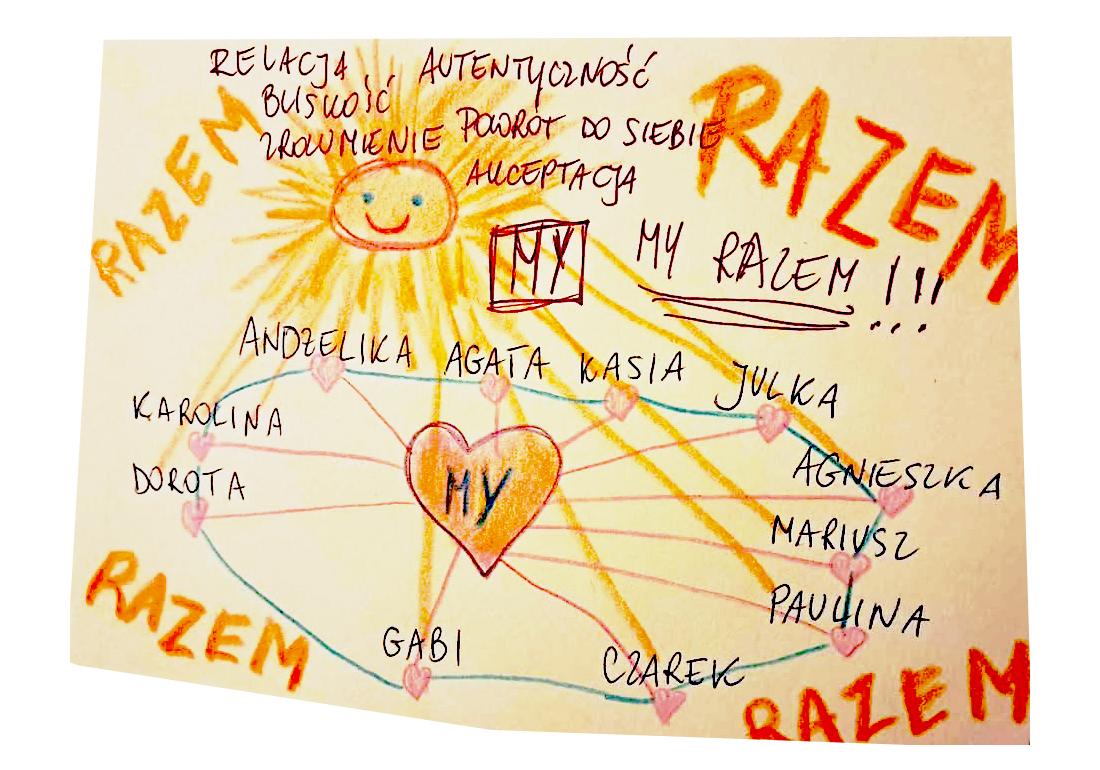 RELACJA AUTENTYCZNOŚĆ
BLISKOŚĆ
ZROZUMIENIE POWRÓT DO SIEBIE
AKCEPTACJA
RAZEM
RAZEM
MY MY RAZEM !!!
...
ANDŻELIKA AGATA KASIA JULKA
KAROLINA
DOROTA
MY
AGNIESZKA
MARIUSZ
PAULINA
GABI
CZAREK
RAZEM
RAZEM